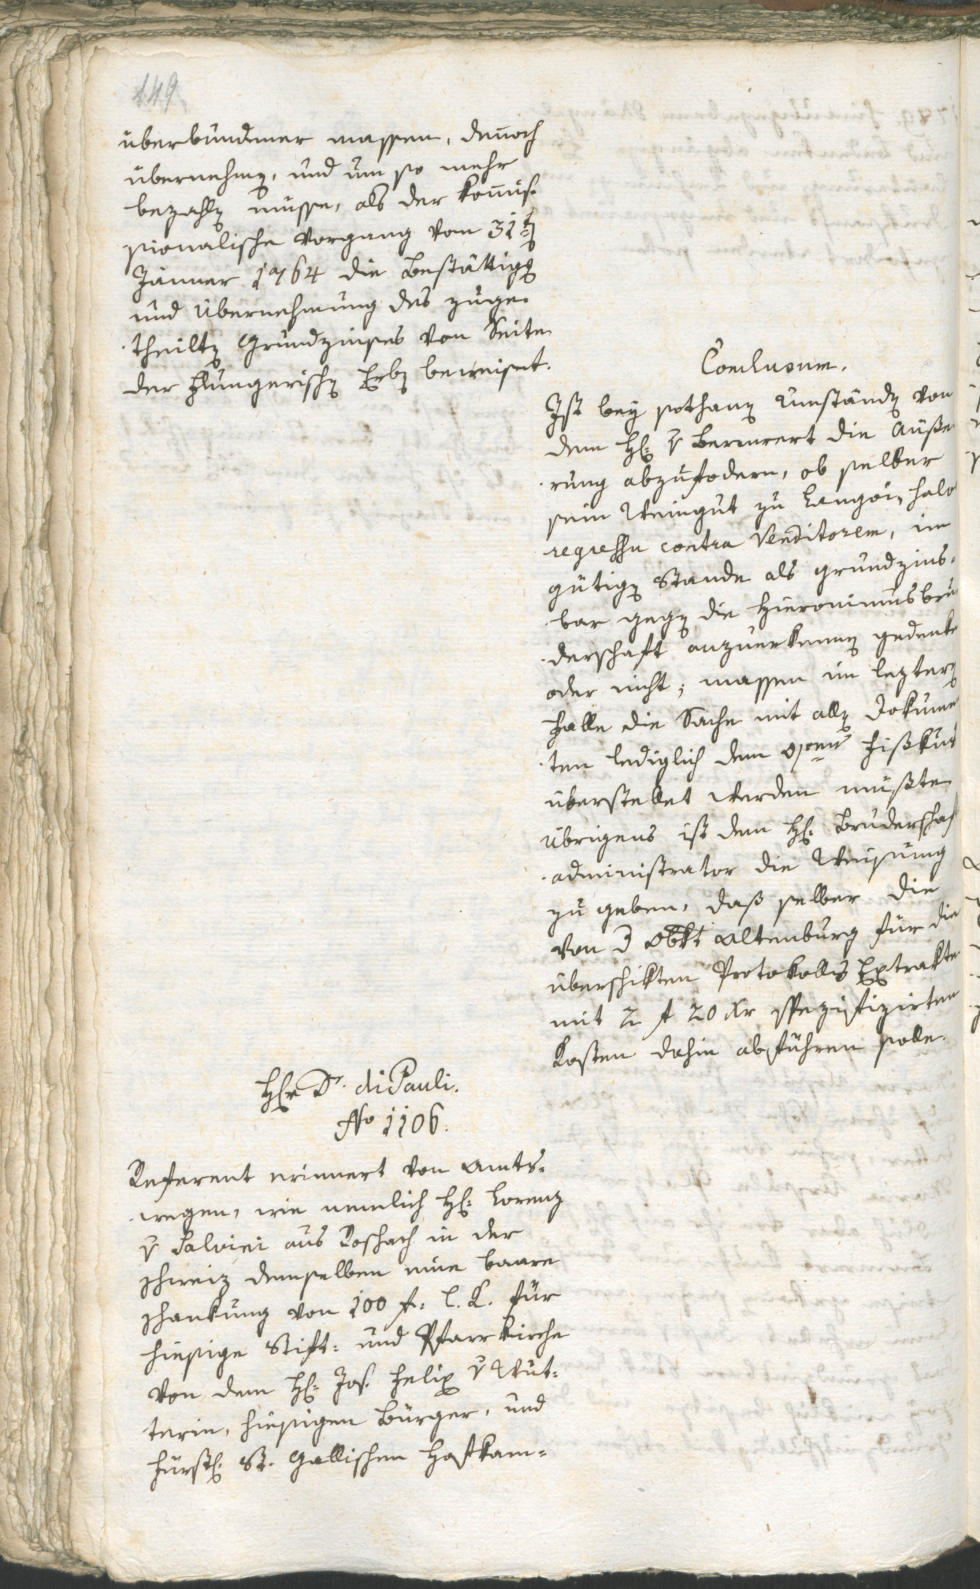 149.
überbundener massen, den̄och
übernehmen, und um so mehr
bezahlen müsse, als der kom̄is-
sionalische Vorgang vom 31ten
Jänner 1764 die Bestättigg
und Übernehmung des zuge-
theilten Grundzinses von Seite
der Hungerischen Erben beweiset.
Conclusum.
Ist bey sothanen Umständen von
dem H: v die Äuße-
rung abzufodern, ob selber
sein Weingut zu Langöi, salvo
regressu contra Venditorem, im
gütigen Stande als grundzins-
bar gegen die Hieronimus bru
derschaft anzuerkennen gedenke
oder nicht; massen im leztern
Falle die Sache mit allen Dokumen
ten lediglich dem Fiskus
überstellet werden müßte
übrigens ist dem H: Bruderschaf
administrator die Weisung
zu geben, daß selber die
von Altenburg für die
überschikten Protokolls Extrakte
mit 2 f 20 Xr spezifizirten
Kosten dahin abführen solle.
H: Dr. di Pauli.
No 1106.
Referent erinnert von Amts-
wegen, wie nemlich H: Lorenz
v Salvini aus Roschach in der
Schweiz demselben eine baare
Schankung von 100 f: C. für
hiesige Stift- und Pfarrkirche
von dem H: Jos. Felix v Wüt-
terin, hiesigen Bürger, und
Fürstl. St. Gallischen Hofkam-